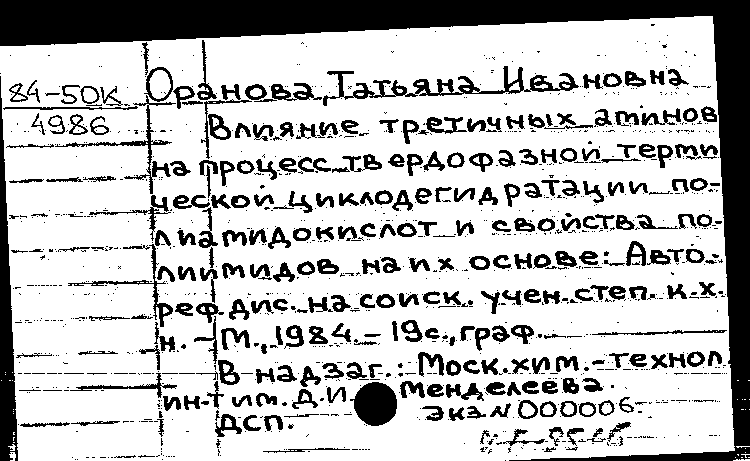 84-50К Оранова, Татьяна Ивановна
4986 Влияние третичных аминов
на процесс твердофазной терми
ческой циклодегидратации по-
лиамидокислот и свойства по-
лиимидов на их основе: Авто-
реф.дис. на соиск. учен.степ. к.х.
н. – М., 1984. – 19с., граф.
В надзаг.: Моск.хим.-технол.
ин-т им. Д.И. Менделеева.
ДСП. Экз.N 000006.